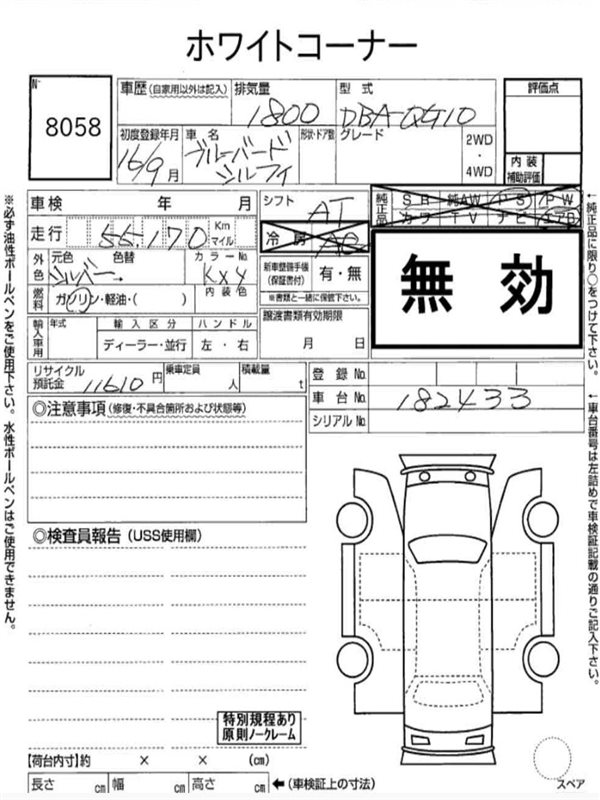 ホワイトコーナー
№
8058
車歴 (自家用以外は記入)
排気量
1800
型式
DBA-QG10
評価点
初度登録年月
16/9月
車名
ブルーバード
シルフィ
形状・ドア数
グレード
2WD
・
4WD
内装
補助評価
車検 年 月
シフト
AT
純正品
SR 純AW PS PW
カワ TV ナビ エアB
走行 55,170 Km
マイル
冷房 AC
外色
元色 色替
シルバー
カラーNo
KX4
内装色
新車整備手帳
(保証書付)
有・無
※書類と一緒に保管下さい。
無効
燃料 ガソリン・軽油・( )
輸入車用
年式
輸入区分
ディーラー・並行
ハンドル
左・右
譲渡書類有効期限
月 日
リサイクル
預託金
11610円
乗車定員
人
積載量
t
登録No.
車台No. 182433
シリアルNo.
◎注意事項(修復・不具合箇所および状態等)
◎検査員報告(USS使用欄)
特別規程あり
原則ノークレーム
【荷台内寸】約 × × (cm)
長さ cm 幅 cm 高さ cm ←(車検証上の寸法)
スペア
※必ず油性ボールペンをご使用下さい。水性ボールペンはご使用できません。
←純正品に限り○をつけて下さい。
←車台番号は左詰めで車検証記載の通りご記入下さい。